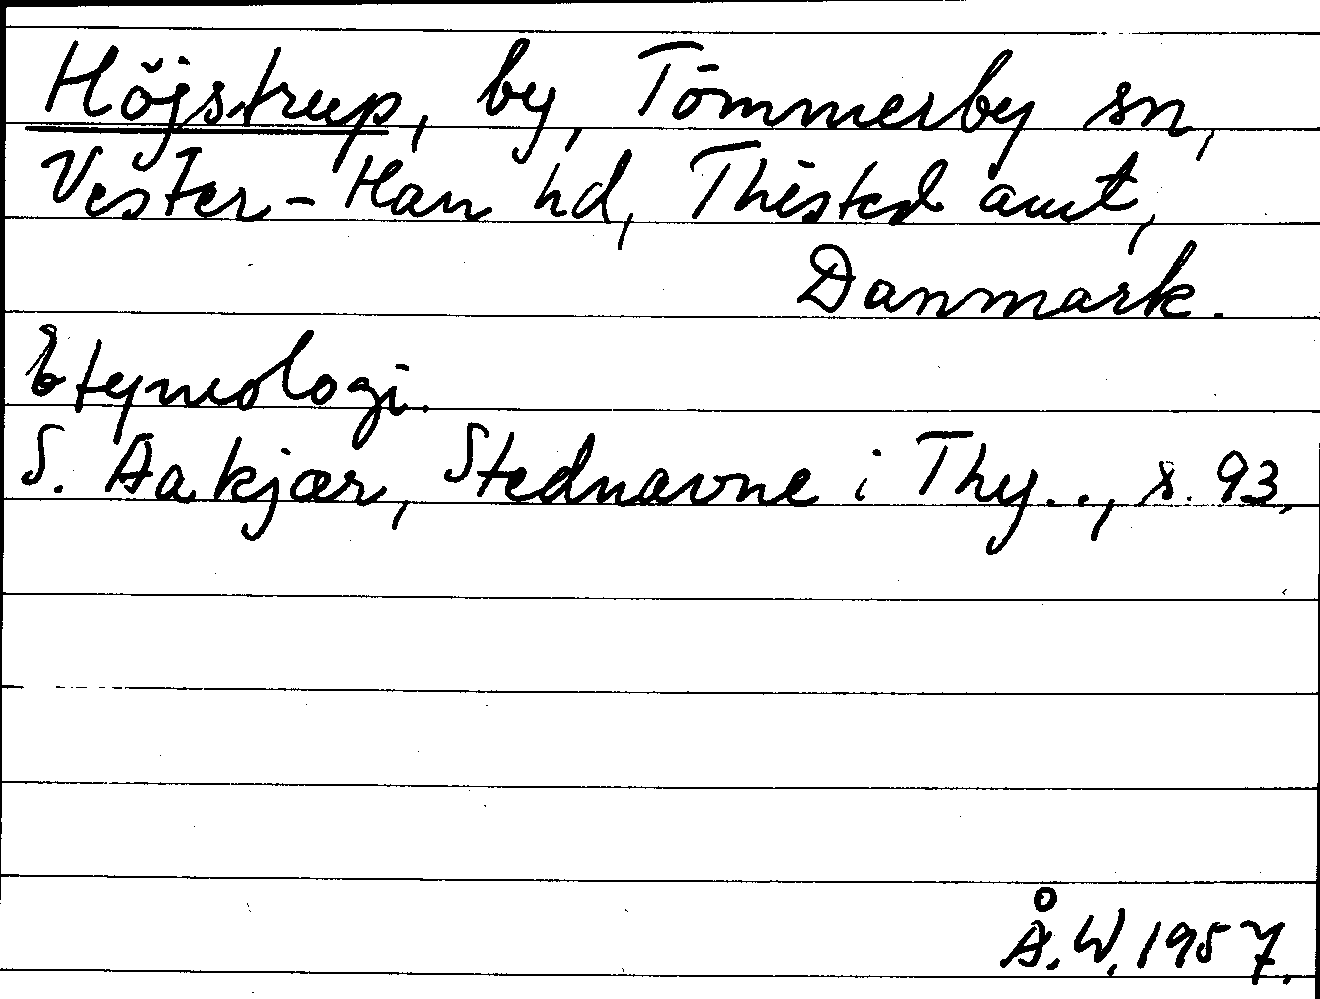 Höjstrup, by, Tömmerby sn,
Vester-Han hd, Thisted amt,
Danmark.
Etymologi.
S. Aakjær, Stednavne i Thy.., s. 93.
Å.W. 1957.